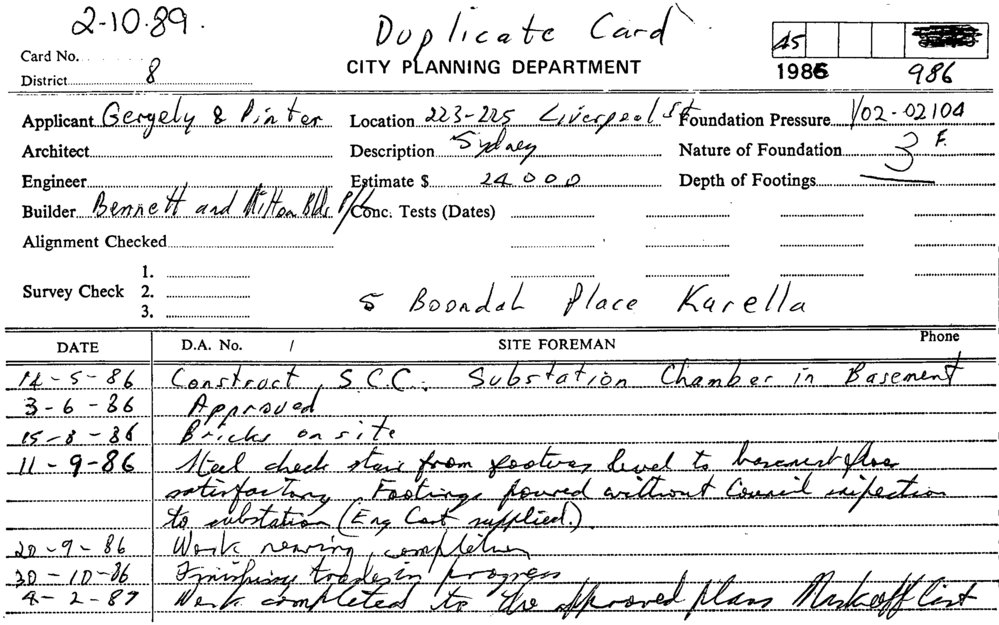 2-10-89.
Duplicate Card
45
Card No.
CITY PLANNING DEPARTMENT
1986 986
District 8
Applicant Gergely & Pinter Location 223-225 Liverpool St Foundation Pressure 1/02-02104
Architect Description Sydney Nature of Foundation 3 F.
Engineer Estimate $ 24000 Depth of Footings
Builder Bennett and Hilton Bldrs P/L Conc. Tests (Dates)
Alignment Checked
1.
Survey Check 2. 5 Boondah Place Karella
3.
DATE D.A. No. / SITE FOREMAN Phone
14-5-86 Construct S.C.C. Substation Chamber in Basement
3-6-86 Approved
15-8-86 Bricks on site
11-9-86 Steel check stair from footway level to basement floor
satisfactory. Footings poured without Council inspection
to substation (Eng Cert supplied).
20-9-86 Work nearing completion
30-10-86 Finishing trades in progress
4-2-87 Work completed to the approved plans